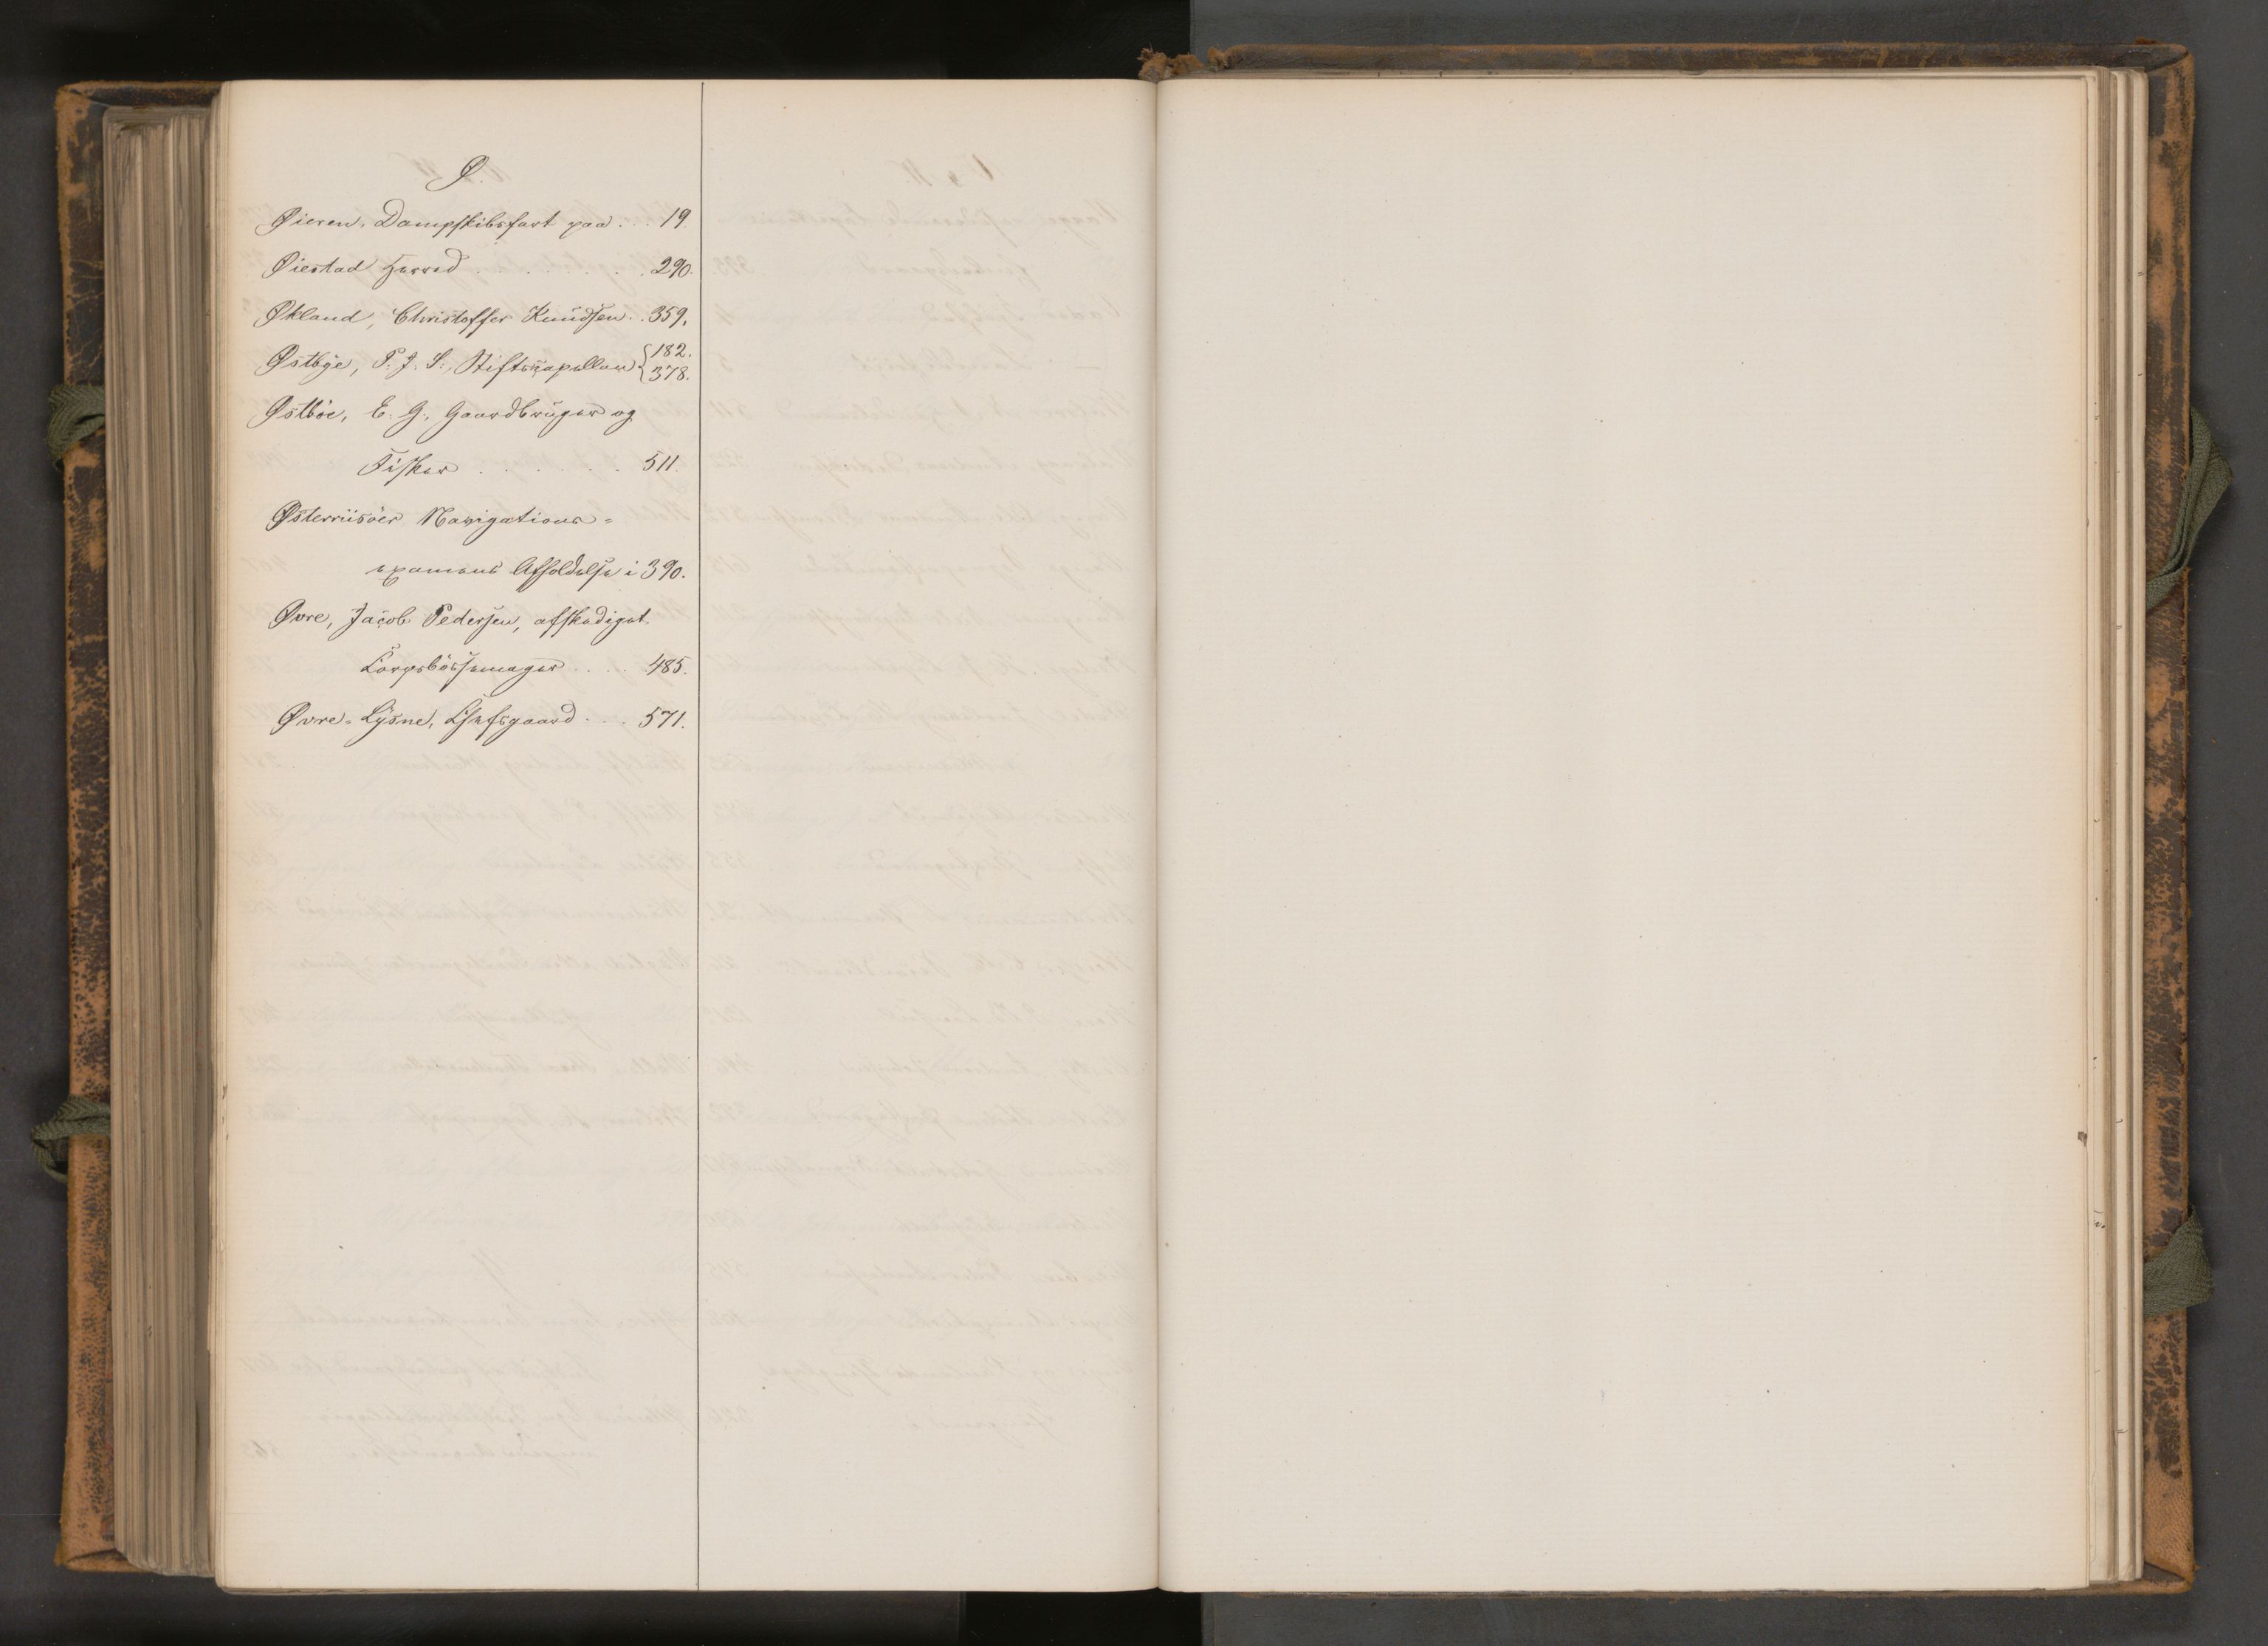 Ø.
Øieren, Dampskibsfart paa . . . 19.
Øiestad Herred . . . . . . . 290.
Økland, Christoffer Knudsen . . 359.
Østbye, P. J. S., Stiftscapellan { 182.
378.
Østbøe, E. G., Gaardbruger og
Fisker . . . . . . 511.
Østerriisöer Navigations-
examens Afholdelse i 390.
Øvre, Jacob Pedersen, afskediget
Corpsbössemager . . . . 485.
Øvre-Lysne, Chefsgaard . . . 571.